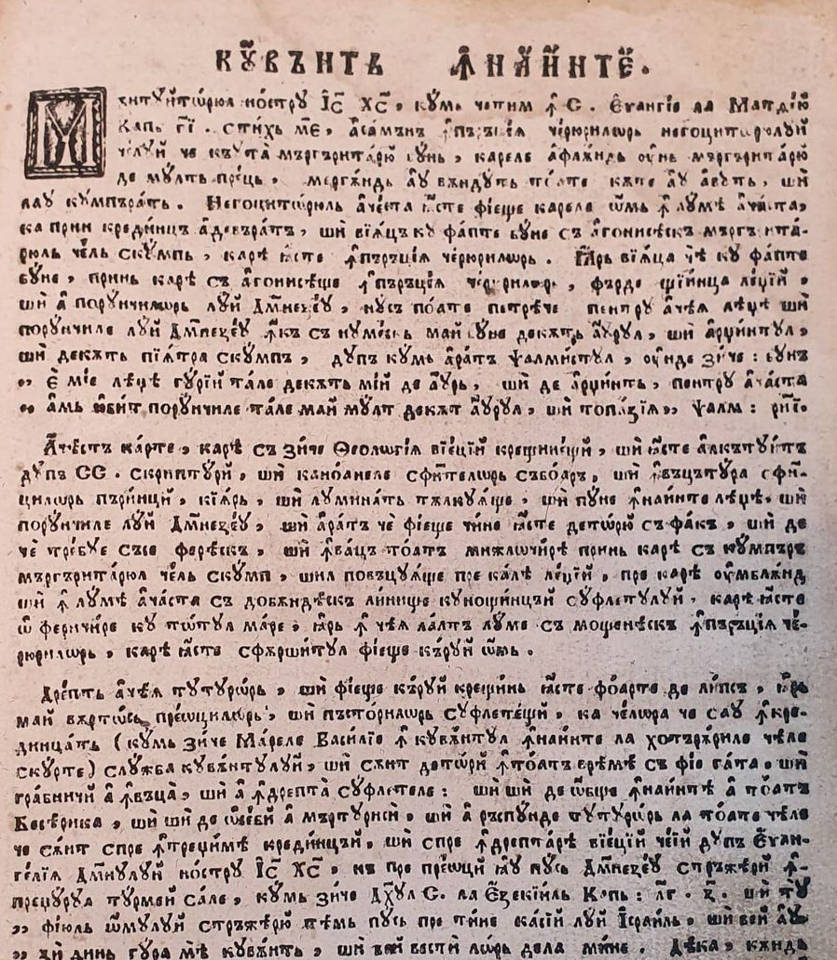 КꙊВѪНТЪ ꙞНАИНТЕ.
Мѫнтуитѡрюл нострꙋ Іс҃ Хс҃, кꙋмь четим ꙟ С. Єѵангїе ла Матдїю
Капь г҃і. стихь м҃е, асамънъ ꙟпъръцїѧ черюрилѡрь негоцитѡрюлꙋй
челꙋй че каꙋтъ мъргъритарю бꙋнь, кареле афлѫндь ꙋнь мъргъритарю
де мꙋлть прець, мергѫндь аꙋ вѫндꙋть тоате кѫте аꙋ авꙋть, ши
лаꙋ кꙋмпъратъ. Негоцитѡрюль ачеста ꙗсте фїеще кареле ѡмь ꙟ лꙋмѣ ачаста,
ка прин крединцъ адевъратъ, ши вїацъ кꙋ фапте бꙋне съ агонисѣскъ мъргъритарюль чель скꙋмпь, карѣ ꙗсте ꙟпъръцїѧ черюрилѡрь. Ꙗрь вїаца чѣ кꙋ фапте
бꙋне, принь карѣ съ агонисеще ꙟпъръцїѧ черюрилѡрь, фърде щїинца леџїй,
ши а порꙋнчилѡрь лꙋй Дм҃незеꙋ, нꙋсъ поате петрѣче пентрꙋ ачеѧ леџѣ ши
порꙋнчиле лꙋй Дм҃незеꙋ ꙟкъ съ нꙋмескь май бꙋне декѫть аꙋрꙋл, ши арџинтꙋл,
ши декѫть пїатра скꙋмпъ, дꙋпъ кꙋмь аратъ Ѱалмистꙋл, ꙋнде зиче: бꙋнъ
„ Є мїе леџѣ гꙋрїй тале декѫть мїй де аꙋрь, ши де арџинть, пентрꙋ ачаста
„ амь юбит порꙋнчиле тале май мꙋлт декѫт аꙋрꙋл, ши топазїѧ„ Ѱалм: р҃иі.
Ачестъ карте, карѣ съ зиче Ѳеологїѧ вїецїй крещинещй, ши ꙗсте алкътꙋитъ
дꙋпъ СС. скриптꙋрй, ши каноанеле сфинтелѡрь събоаръ, ши ꙟвъцътꙋра сфинцилѡрь пъринцй, кїѧрь, ши лꙋминать тълкꙋѧще, ши пꙋне ꙟнаинте леџѣ, ши
порꙋнчиле лꙋй Дм҃незеꙋ, ши аратъ че фїеще чине ꙗсте детѡрю съ факъ, ши де
че требꙋе съсе ферѣскъ, ши ꙟвацъ тоатъ мижлочирѣ принь карѣ съ кꙋмпъръ
мъргъритарюл чель скꙋмп, шил повъцꙋѧще пре калѣ леџїй, пре карѣ ꙋмблѫнд
ши ꙟ лꙋмѣ ачаста съ добѫндѣскъ линище кꙋнощинцїй сꙋфлетꙋлꙋй, карѣ ꙗсте
ѡ феричире кꙋ тотꙋл маре, ꙗрь ꙟ чеѧ лалтъ лꙋме съ мощенѣскъ ꙟпъръцїѧ черюрилѡрь, карѣ ꙗсте сфѫршитꙋл фїеще кърꙋй ѡмь.
Дрепть ачеѧ тꙋтꙋрѡрь, ши фїеще кърꙋй крещинь ꙗсте фоарте де липсъ, ꙗрь
май вѫртѡсь преѡцилѡрь, ши пъсторилѡрь сꙋфлетещй, ка челѡра че саꙋ ꙟкрединцать (кꙋмь зиче Мареле Василїе ꙟ кꙋвѫнтꙋл ꙟнаинте ла хотърѫриле челе
скꙋрте) слꙋжба кꙋвѫнтꙋлꙋй, ши сѫнт деторй ꙟтоатъ врѣмѣ съ фїе гата, ши
грабничй а ꙟвъца, ши а ꙟдрепта сꙋфлетеле: ши ши де ѡбще ꙟнаинтѣ а тоатъ
Бесѣрика, ши ши де ѡсебй а мъртꙋриси, ши а распꙋнде тꙋтꙋрѡрь ла тоате челе
че сѫнт спре ꙟтремѣ крединцъй, ши спре ꙟдрептарѣ вїецїй чеїй дꙋпъ Єѵангелїѧ Дм҃нꙋлꙋй нострꙋ Іс҃ Хс҃, къ пре преѡцй ꙗꙋ пꙋсь Дм҃незеꙋ стръжерй ꙟпреџꙋрꙋл тꙋрмей сале, кꙋмь зиче Дх҃ꙋл С. ла Єзекїиль Капь: л҃г. з҃. ши тꙋ
„ фїюль ѡмꙋлꙋй стръжерю темь пꙋсь пре тине касїй лꙋй Ісраиль, ши вей аꙋ-
„ зи динь гꙋра мѣ кꙋвѫнть, ши вей вести лѡрь дела мине. Дека, кѫндь